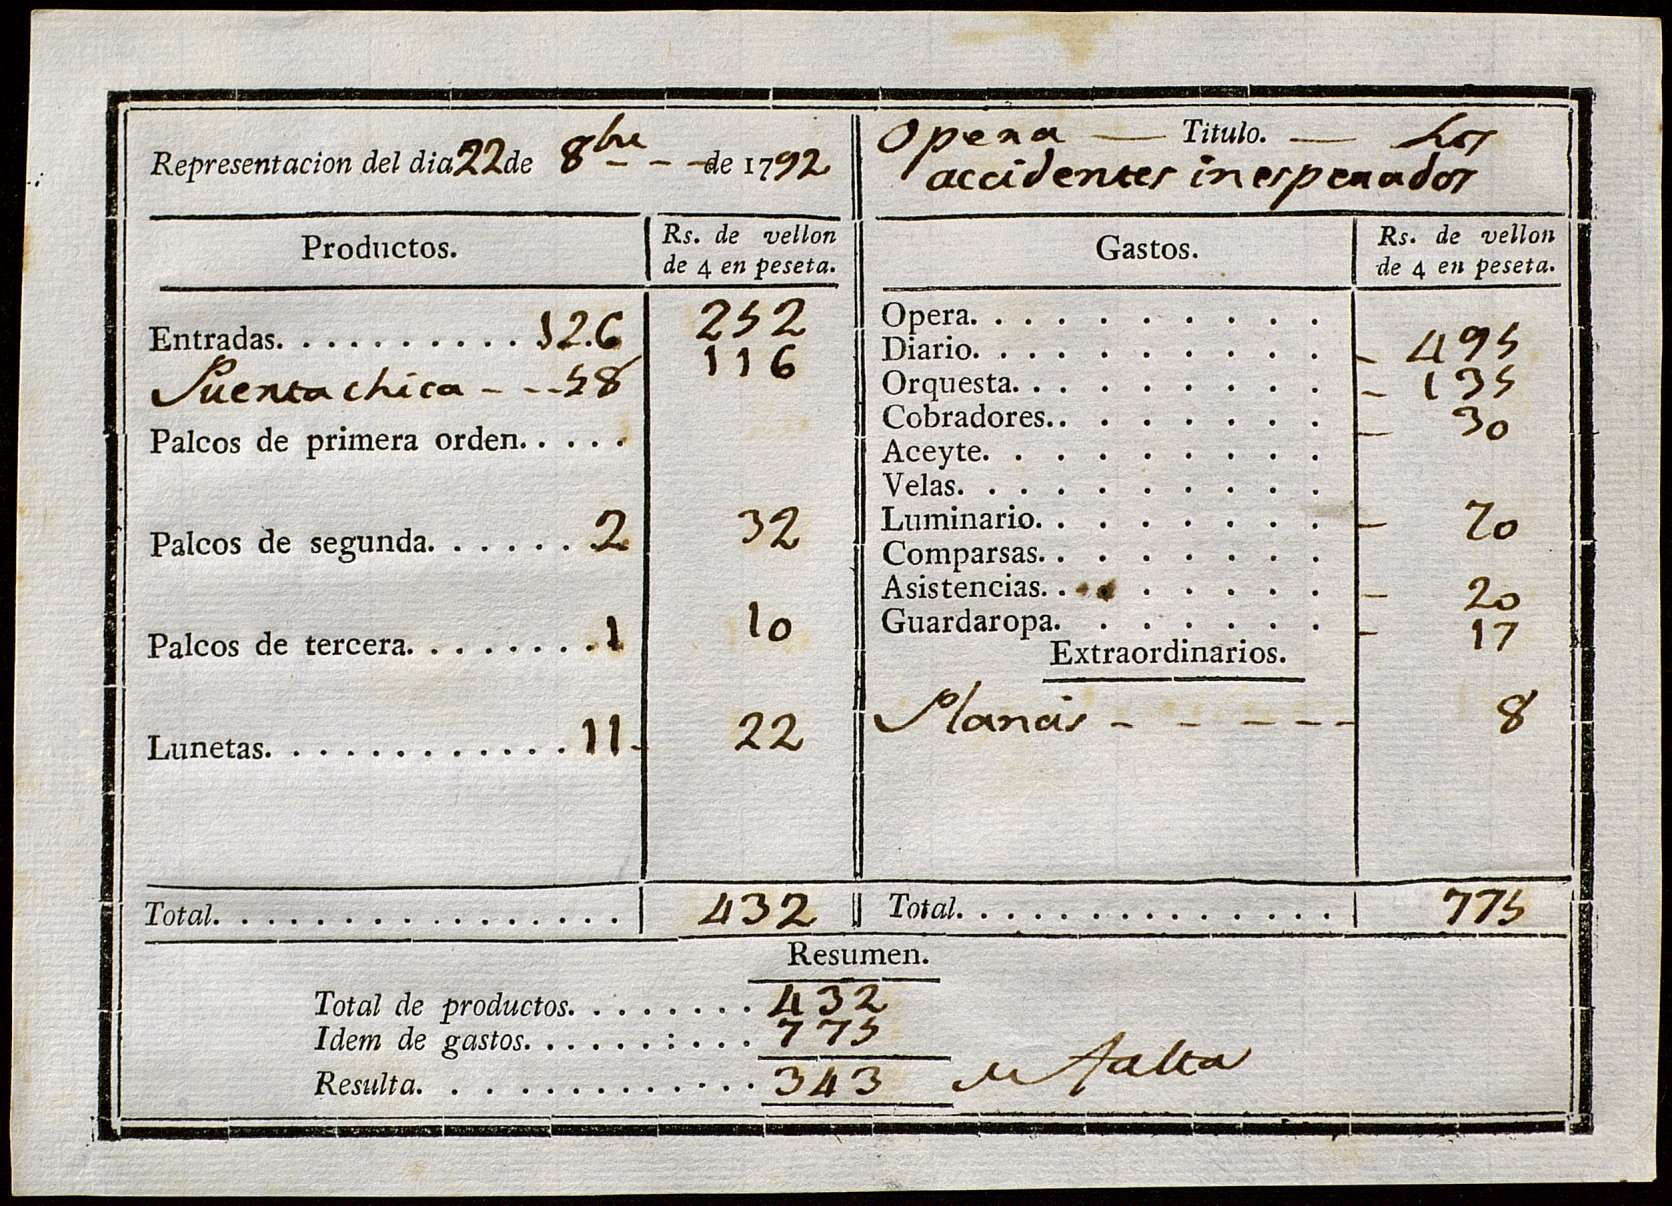 Representacion del dia 22 de 8bre - - - de 1792
Opera — Titulo. — Los
accidentes inesperados
Productos.
Rs. de vellon
de 4 en peseta.
Entradas. . . . . . . . . . 126 252
Puerta chica - - - 58 116
Palcos de primera orden. . . . .
Palcos de segunda. . . . . . 2 32
Palcos de tercera. . . . . . . . 1 10
Lunetas. . . . . . . . . . . . . 11 - 22
Total. . . . . . . . . . . . . . . . . 432
Gastos.
Rs. de vellon
de 4 en peseta.
Opera. . . . . . . . . .
Diario. . . . . . . . . . - 495
Orquesta. . . . . . . . . - 135
Cobradores. . . . . . . . - 30
Aceyte. . . . . . . . .
Velas. . . . . . . . . .
Luminario. . . . . . . . - 70
Comparsas. . . . . . . .
Asistencias. . . . . . . . - 20
Guardaropa. . . . . . . - 17
Extraordinarios.
Planas - - - - - - 8
Total. . . . . . . . . . . . . . . 775
Resumen.
Total de productos. . . . . . . . 432
Idem de gastos. . . . . . : . . . 775
Resulta. . . . . . . . . . . . . 343 de falta